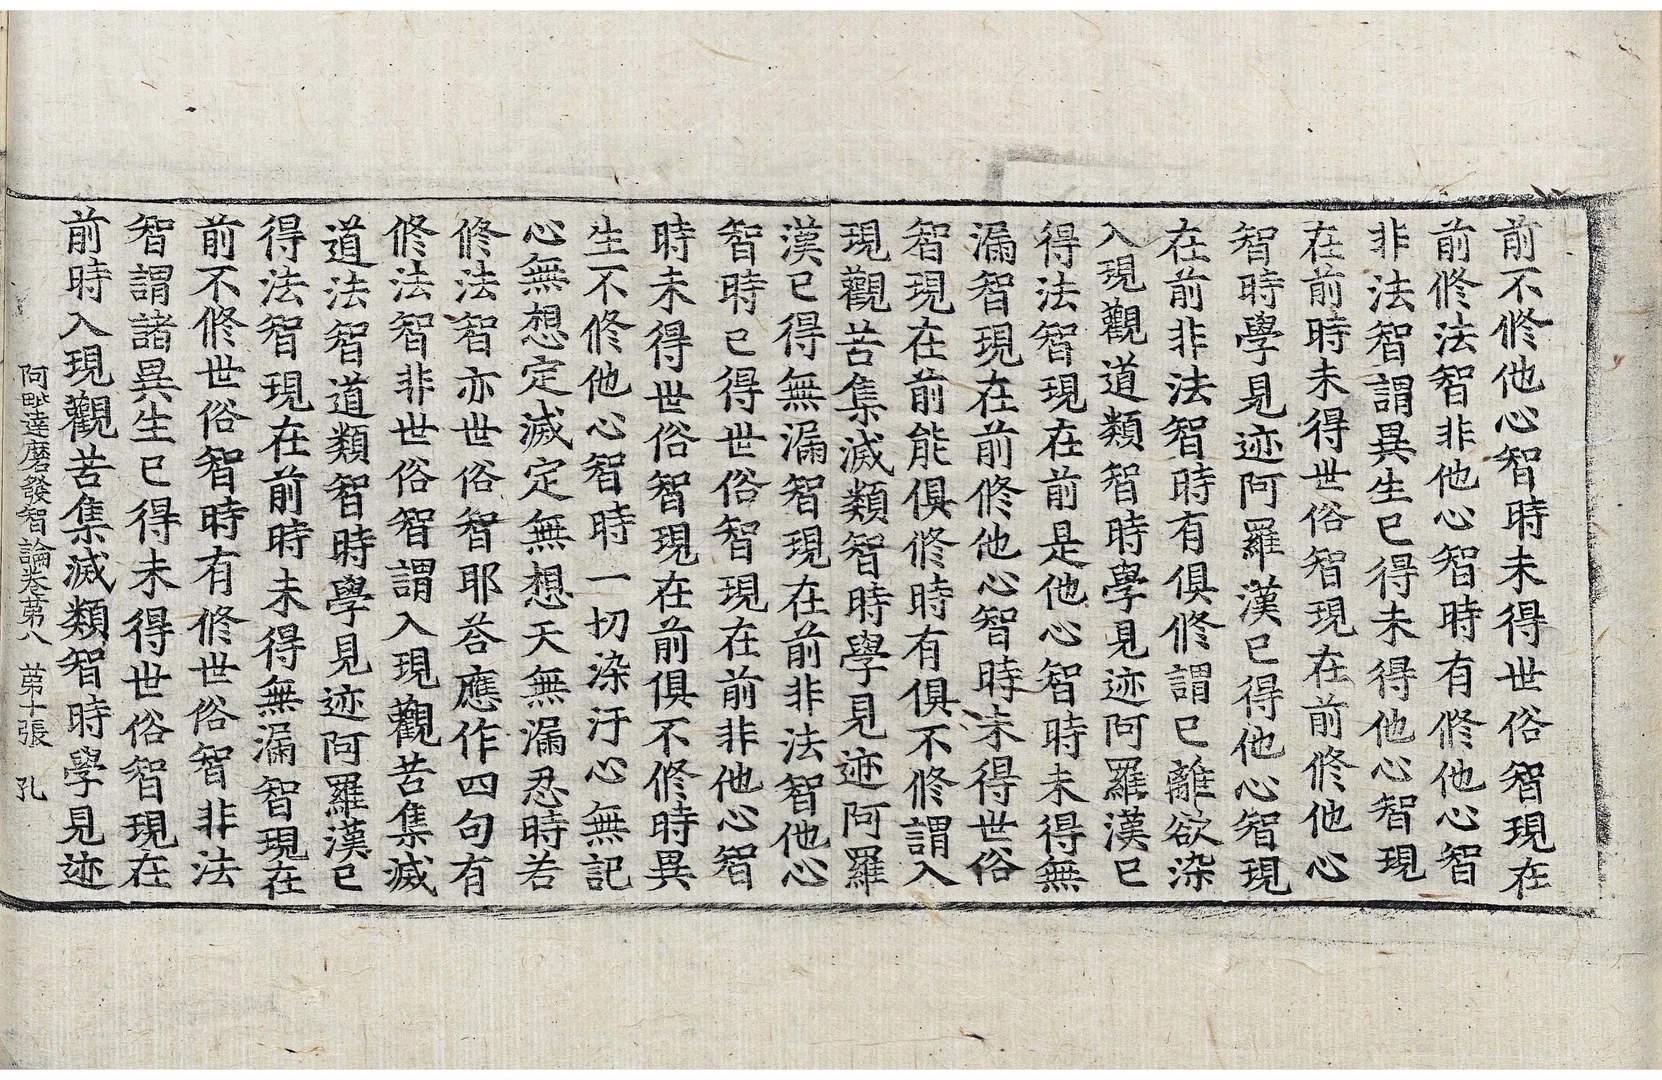 前不修他心智時未得世俗智現在
前修法智非他心智時有修他心智
非法智謂異生已得未得他心智現
在前時未得世俗智現在前修他心
智時學見迹阿羅漢已得他心智現
在前非法智時有俱修謂已離欲染
入現觀道類智時學見迹阿羅漢已
得法智現在前是他心智時未得無
漏智現在前修他心智時未得世俗
智現在前能俱修時有俱不修謂入
現觀苦集滅類智時學見迹阿羅
漢已得無漏智現在前非法智他心
智時已得世俗智現在前非他心智
時未得世俗智現在前俱不修時異
生不修他心智時一切染汙心無記
心無想定滅定無想天無漏忍時若
修法智亦世俗智耶荅應作四句有
修法智非世俗智謂入現觀苦集滅
道法智道類智時學見迹阿羅漢已
得法智現在前時未得無漏智現在
前不修世俗智時有修世俗智非法
智謂諸異生已得未得世俗智現在
前時入現觀苦集滅類智時學見迹
阿毗達磨發智論卷第八 第十張 孔